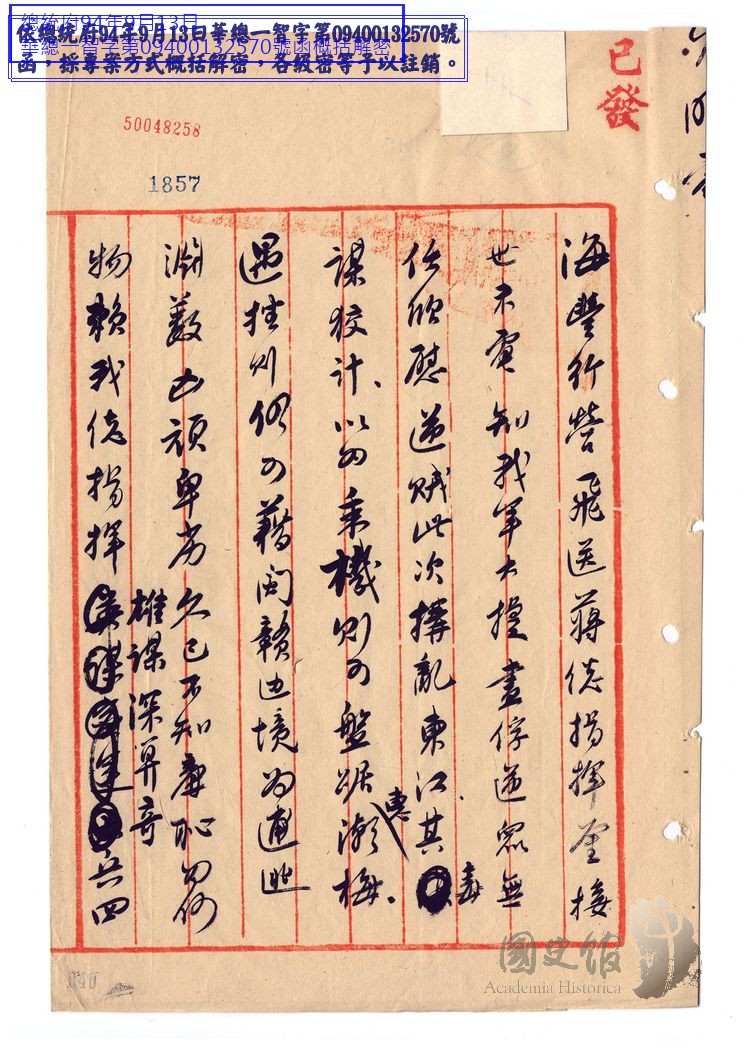 依總統府94年9月13日華總一智字第09400132570號
函，採專案方式概括解密，各級密等予以註銷。
總統府94年9月13日
華總一智字第09400132570號函概括解密
已發
50048258
1857
海豐行營飛送蔣總指揮鑒接
世未電知我軍大捷盡俘逆眾無
任欣慰逆賊此次搆亂東江其毒
謀狡計以為乘機則可盤踞潮惠梅
遇挫則仍可藉閩贛邊境為逋逃
淵藪凶頑卑劣久已不知廉恥為何
物賴我總指揮雄謀深算奇兵四
040
國史館
Academia Historica